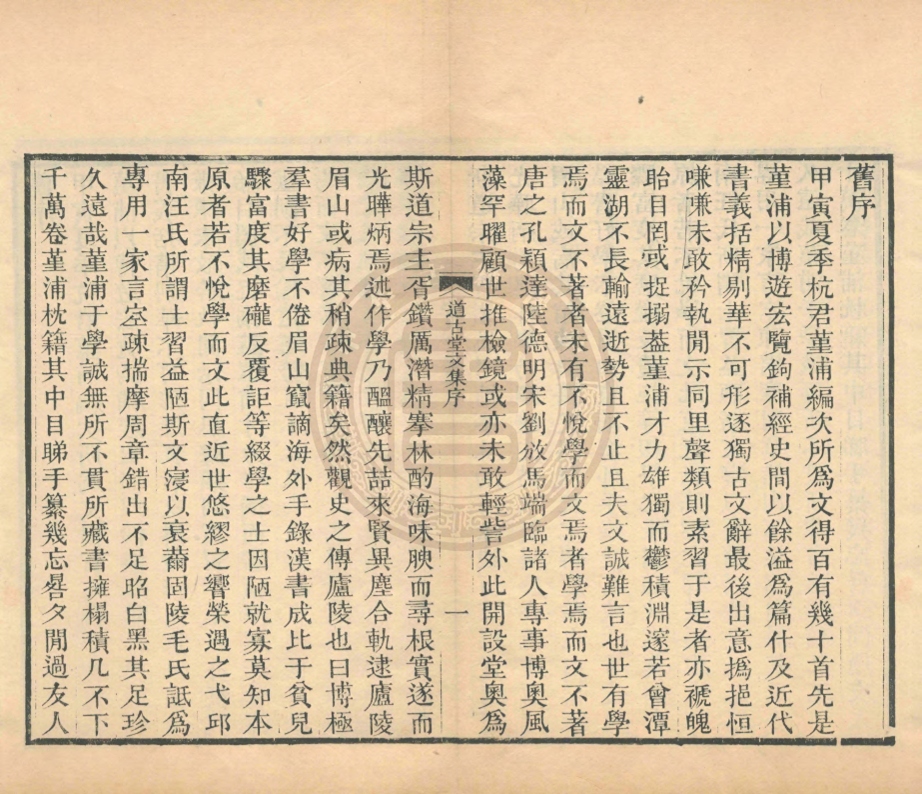 舊序
甲寅夏季杭君堇浦編次所爲文得百有幾十首先是
堇浦以博遊宏覽鉤補經史間以餘溢爲篇什及近代
書義括精剔華不可形逐獨古文辭最後出意撝挹恒
嗛嗛未敢矜執閒示同里聲類則素習于是者亦褫魄
眙目罔或捉搦葢堇浦才力雄獨而鬱積淵邃若曾潭
靈湖不長輸遠逝勢且不止且夫文誠難言也世有學
焉而文不著者未有不悅學而文焉者學焉而文不著
唐之孔穎達陸德明宋劉攽馬端臨諸人專事博奧風
藻罕曜顧世推檢鏡或亦未敢輕訾外此開設堂奧爲
道古堂文集序
一
斯道宗主胥鑽厲潛精搴林酌海味腴而尋根實遂而
光曄炳焉述作學乃醞釀先喆來賢異塵合軌逮廬陵
眉山或病其稍疎典籍矣然觀史之傳廬陵也曰博極
羣書好學不倦眉山竄謫海外手錄漢書成比于貧兒
驟富度其磨礲反覆詎等綴學之士因陋就寡莫知本
原者若不悅學而文此直近世悠繆之響榮遇之弋邱
南汪氏所謂士習益陋斯文寖以衰薾固陵毛氏詆爲
專用一家言空疎揣摩周章錯出不足昭白黑其足珍
久遠哉堇浦于學誠無所不貫所藏書擁榻積几不下
千萬卷堇浦枕籍其中目睇手纂幾忘晷夕閒過友人